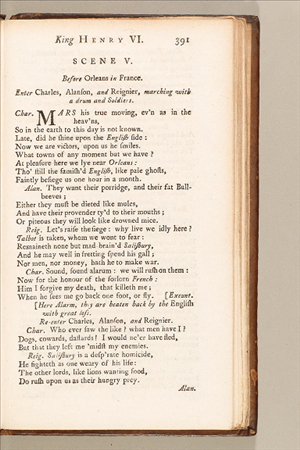 King HENRY VI. 391
SCENE V.
Before Orleans in France.
Enter Charles, Alanson, and Reignier, marching with
a drum and Soldiers.
Char. MARS his true moving, ev'n as in the
heav'ns,
So in the earth to this day is not known.
Late, did he shine upon the English side:
Now we are victors, upon us he smiles.
What towns of any moment but we have?
At pleasure here we lye near Orleans:
Tho' still the famish'd English, like pale ghosts,
Faintly besiege us one hour in a month.
Alan. They want their porridge, and their fat Bull-
beeves;
Either they must be dieted like mules,
And have their provender ty'd to their mouths;
Or piteous they will look like drowned mice.
Reig. Let's raise the siege: why live we idly here?
Talbot is taken, whom we wont to fear:
Remaineth none but mad-brain'd Salisbury,
And he may well in fretting spend his gall;
Nor men, nor money, hath he to make war.
Char. Sound, sound alarum: we will rush on them:
Now for the honour of the forlorn French:
Him I forgive my death, that killeth me;
When he sees me go back one foot, or fly. [Exeunt.
[Here Alarm, they are beaten back by the English
with great loss.
Re-enter Charles, Alanson, and Reignier.
Char. Who ever saw the like? what men have I?
Dogs, cowards, dastards! I would ne'er have fled,
But that they left me 'midst my enemies.
Reig. Salisbury is a desp'rate homicide,
He fighteth as one weary of his life:
The other lords, like lions wanting food,
Do rush upon us as their hungry prey.
Alan.